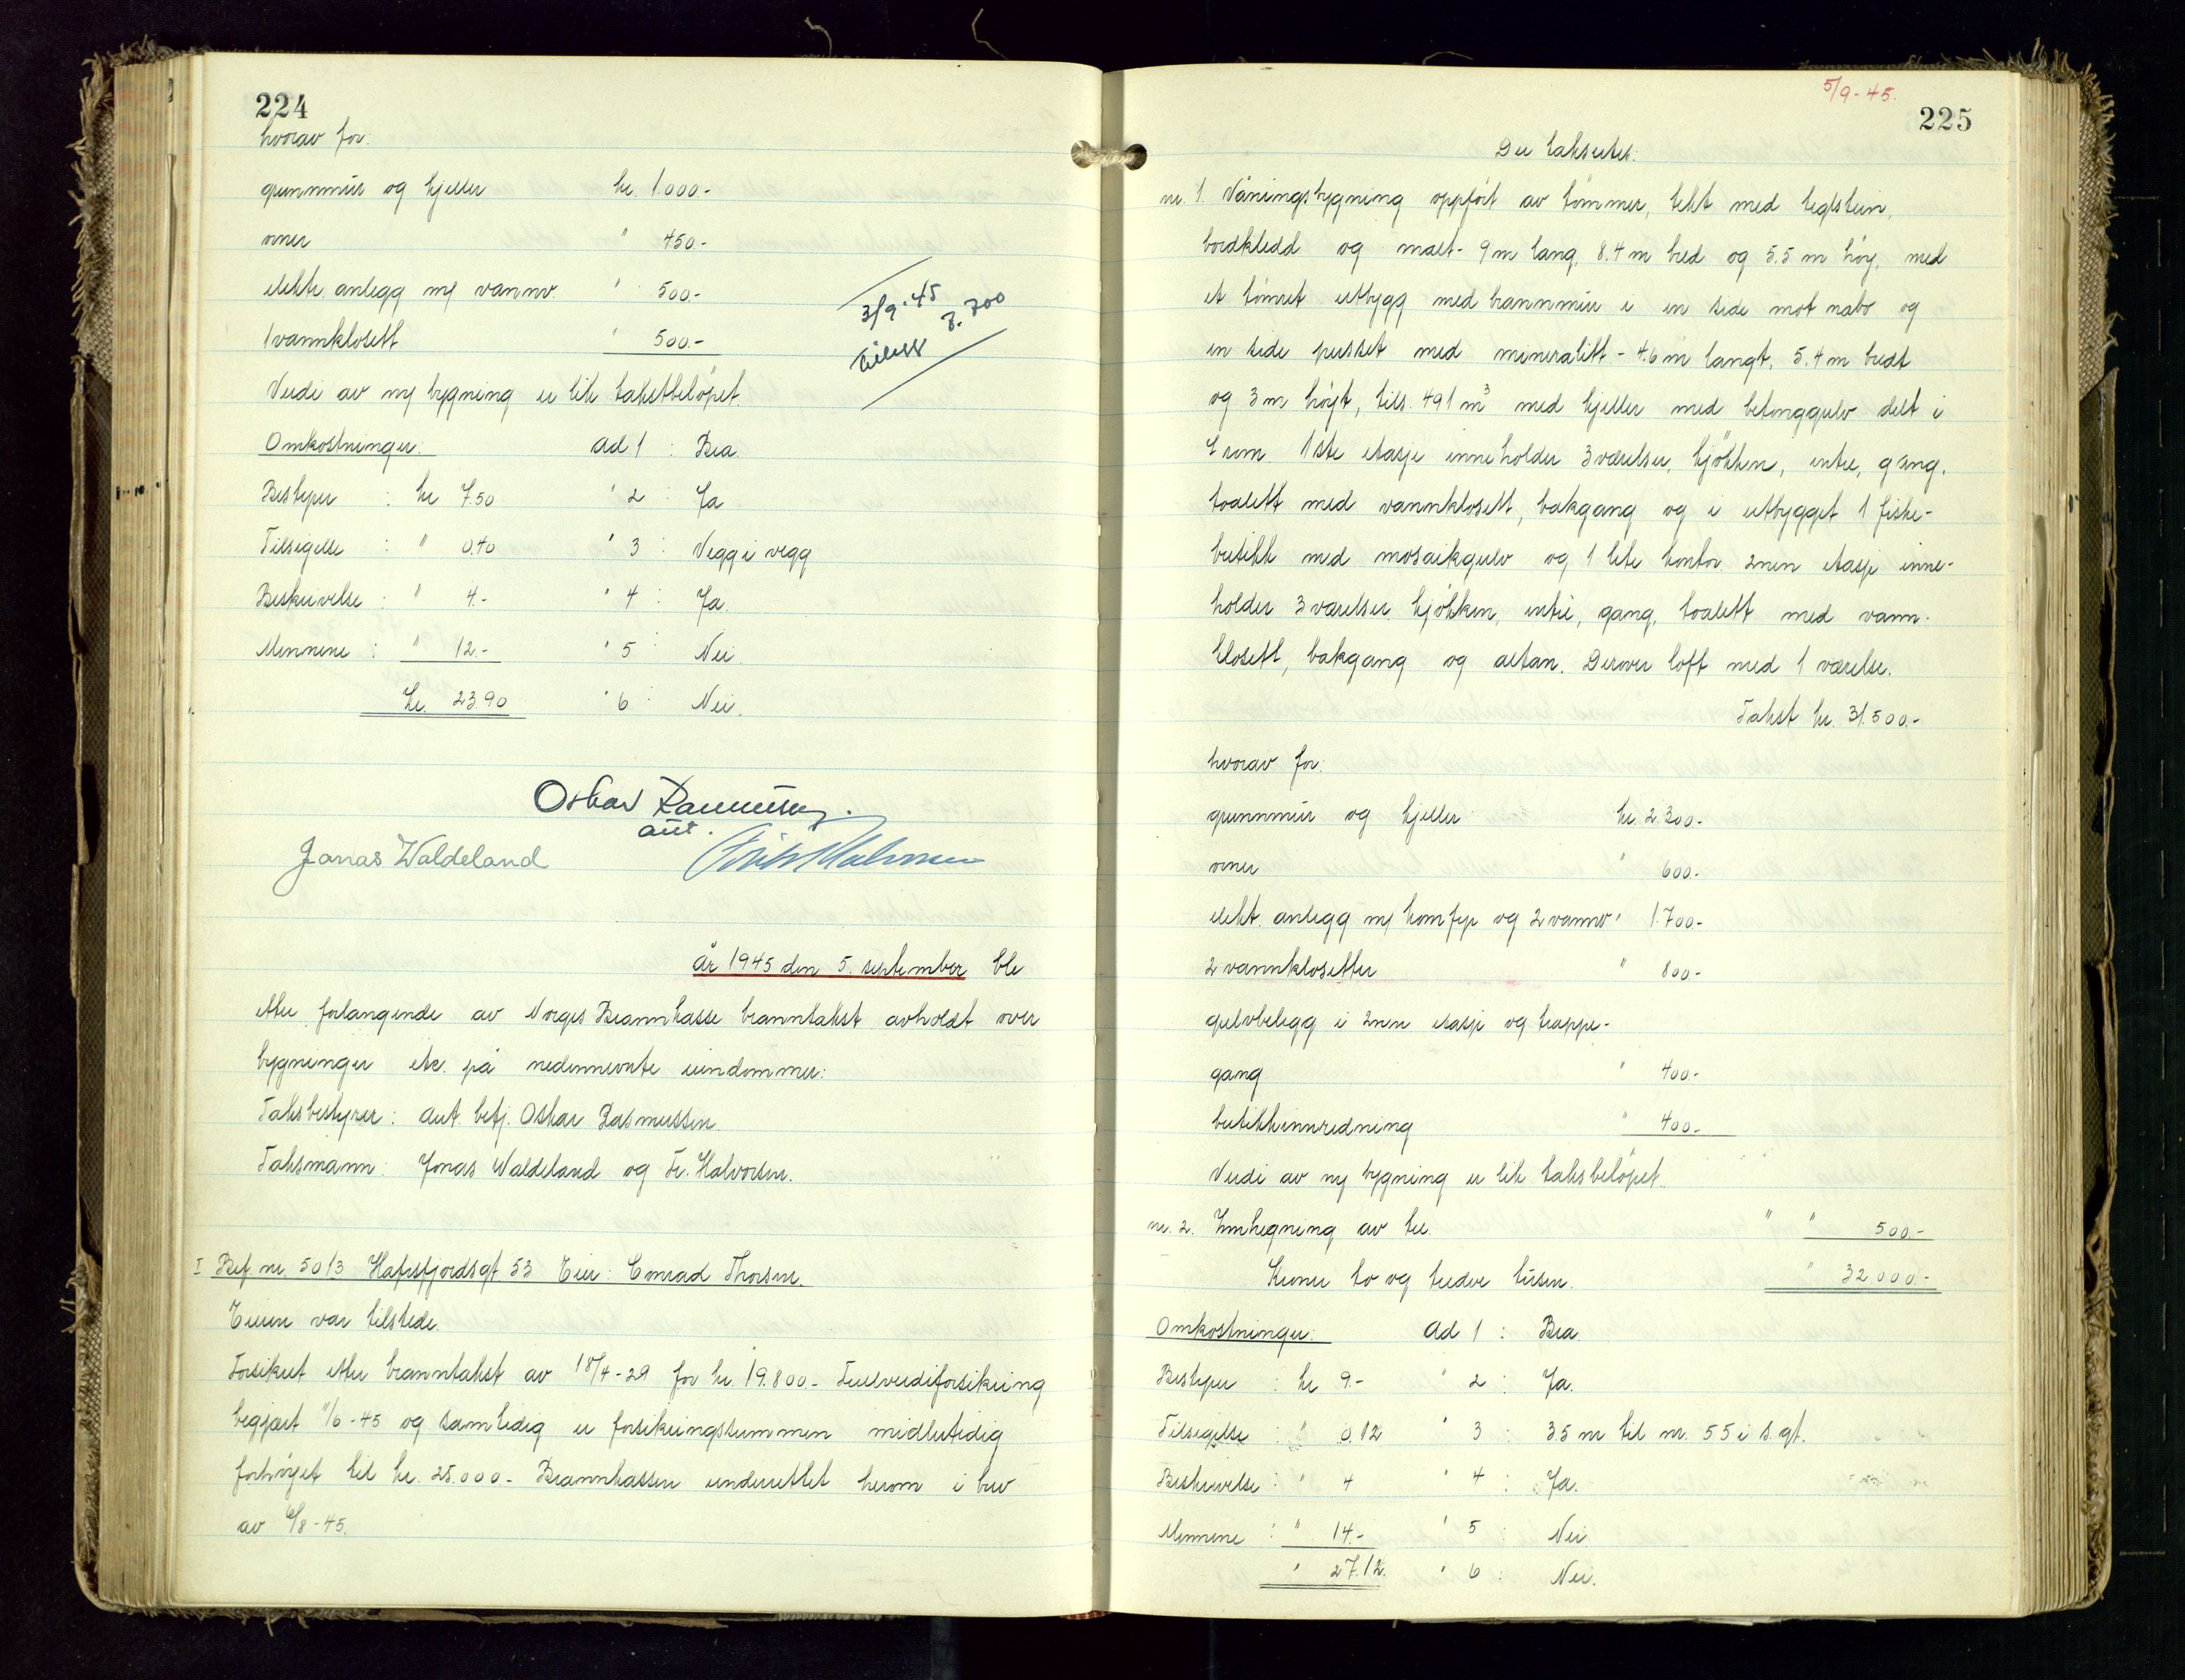 224
hvorav for:
grunnmur og kjeller kr. 1.000.-
ovner " 450.-
elektr. anlegg m/ vannv. " 500.-
1 vannklosett " 500.-
3/9-45
tillegg
Verdi av ny bygning er lik takstbeløpet.
Omkostninger: ad 1 : Bra.
Bestyrer : kr 7.50 " 2 : Ja
Tilsigelse : " 0.40 " 3 : Vegg i vegg
Beskrivelse : " 4.- " 4 : Ja.
Mennene : " 12.- " 5 : Nei.
kr. 23.90 " 6 : Nei.
Oskar Rasmussen.
aut.
Jonas Waldeland
År 1945 den 5. september ble
etter forlangende av Norges Brannkasse branntakst avholdt over
bygninger etc. på nedennevnte eiendommer:
Takstbestyrer: aut. betj. Oskar Rasmussen.
Takstmann: Jonas Waldeland og Fr. Halvorsen.
I Bef. nr. 5013 Hafrsfjordsgt 53 Eier: Conrad Thorsen.
Eieren var tilstede.
Forsikret etter branntakst av 18/4-29 for kr. 19.800.- Fullverdiforsikring
begjært 11/6-45 og samtidig er forsikringssummen midlertidig
forhøyet til kr. 25.000.- Brannkassen underrettet herom i brev
av 6/8-45.
5/9-45.
225
Der takseres:
nr. 1. Våningsbygning oppført av tømmer, tekt med teglstein,
bordkledd og malt - 9 m lang, 8.4 m bred og 5.5 m høy, med
et tømret utbygg med brannmur i en side mot nabo og
en side pusset med mineralitt - 4.6 m langt, 5.4 m bredt
og 3 m høyt, tils. 491 m³ med kjeller med betonggulv delt i
rom. 1ste etasje inneholder 3 værelser, kjøkken, entre, gang,
toalett med vannklosett, bakgang og i utbygget 1 fiske-
butikk med mosaikgulv og 1 lite kontor. 2nen etasje inne-
holder 3 værelser, kjøkken, entré, gang, toalett med vann-
klosett, bakgang og altan. Derover loft med 1 værelse.
Takst kr. 31.500.-
hvorav for:
grunnmur og kjeller kr. 2.300.-
ovner " 600.-
elekt. anlegg m/ komfyr og 2 vannv " 1.700.-
2 vannklosetter " 800.-
gulvbelegg i 2nen etasje og trappe-
gang " 400.-
butikkinnredning " 400.-
Verdi av ny bygning er lik takstbeløpet.
nr. 2. Innhegning av tre. " " 500.-
Kroner to og tredve tusen. " 32.000.-
Omkostninger: ad 1 : Bra.
Bestyrer : kr 9.- " 2 : Ja.
Tilsigelse : " 0.12 " 3 : 3.5 m til nr. 55 i s. gt.
Beskrivelse : " 4 " 4 : Ja.
Mennene : " 14.- " 5 : Nei.
" 27.12. " 6 : Nei.